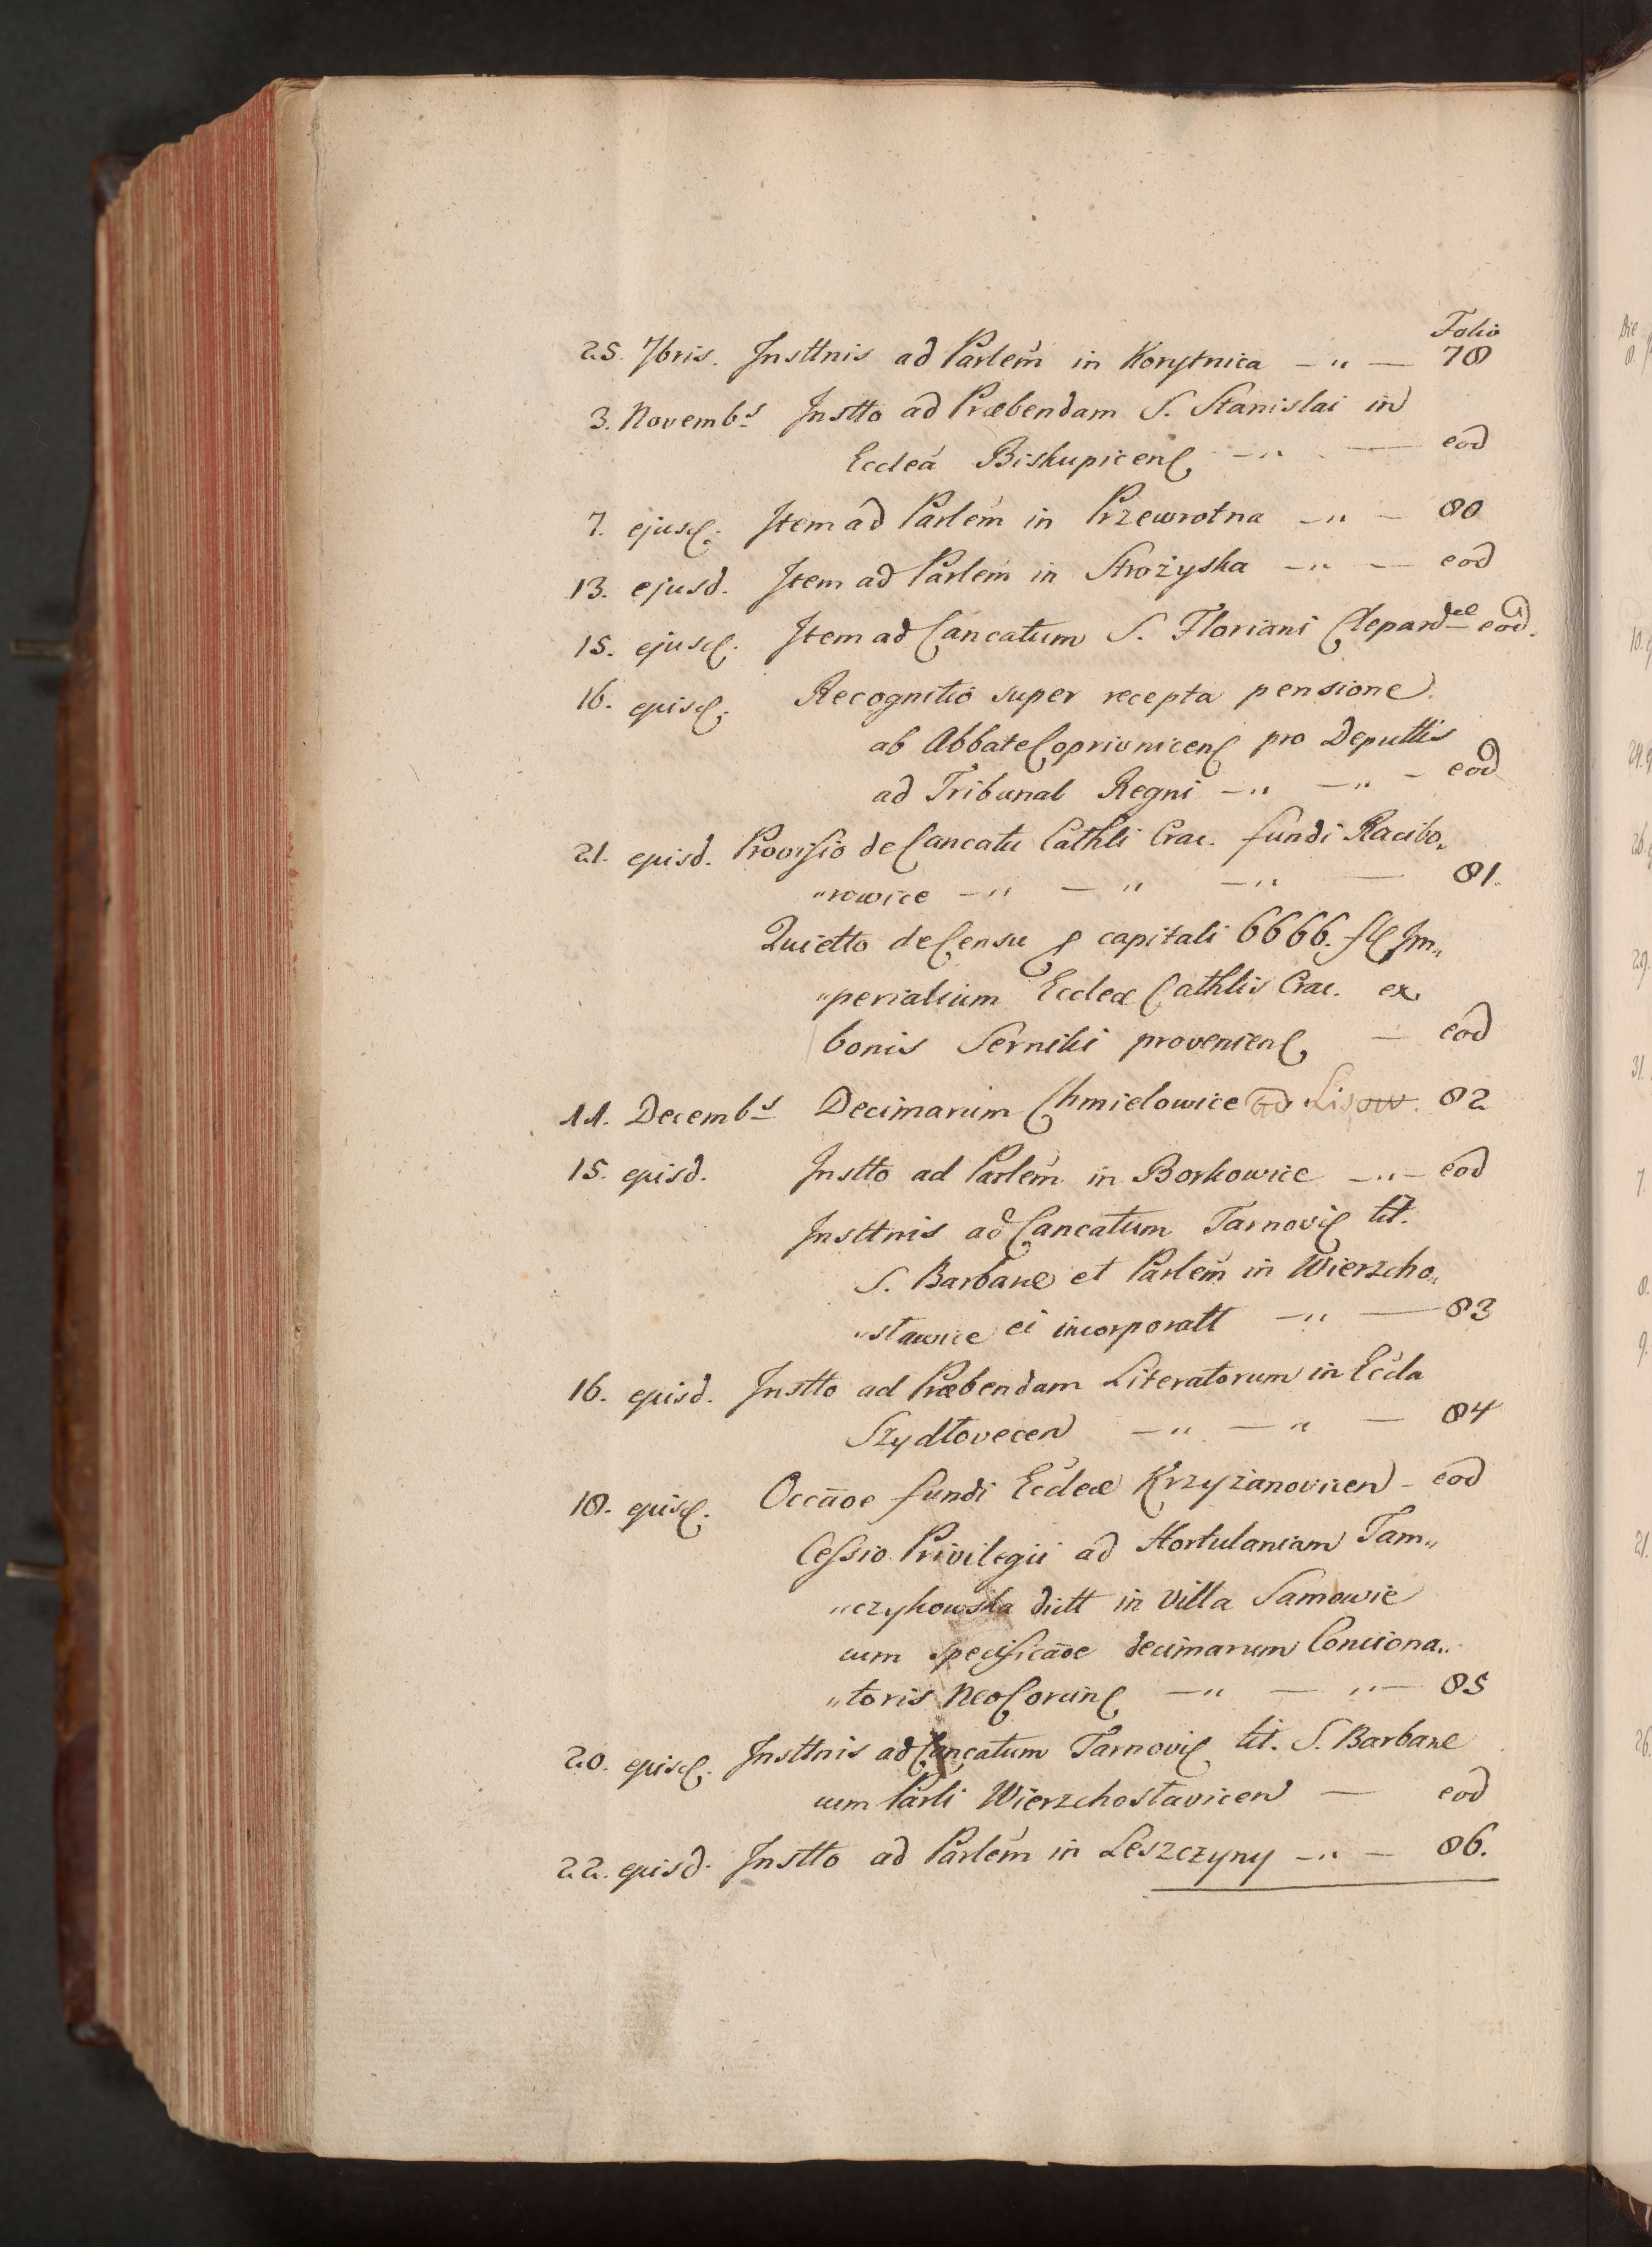 Folio
25. 7bris. Insttnis ad Parlem̃ in Korytnica — „ — 78
3. Novembs Instto ad Præbendam S. Stanislai in
Eccleã Biskupicens — „ — eod
7. ejusd. Item ad Parlem̃ in Przewrotna — „ — 80
13. ejusd. Item ad Parlem̃ in Strożyska — „ — eod
15. ejusd. Item ad Cancatum S. Floriani Clepardæ eod.
16. ejusd. Recognitio super recepta pensione
ab Abbate Coprivnicens pro Deputtis
ad Tribunal Regni — „ — „ — eod
21. ejusd. Provisio de Cancatu Cathli Crac. fundi Racibo„
„rowice — „ — „ — „ — 81.
Quietto de Censu p capitali 6666. fl Im„
„perialium Eccleæ Cathlis Crac. ex
bonis Serniki proveniens — eod
11. Decembs Decimarum Chmielowice ad Lisow. 82
15. ejusd. Instto ad Parlem̃ in Borkowice — „ — eod
Insttnis ad Cancatum Tarnovis tit.
S. Barbaræ et Parlem̃ in Wierzcho„
„sławice ei incorporatt — „ — 83
16. ejusd. Instto ad Præbendam Literatorum in Eccla
Szydłovecen — „ — „ — 84
18. ejusd. Occãoe fundi Eccleæ Krzyżanovicen — eod
Cessio Privilegii ad Hortulaniam Tam„
„czykowska dictt in Villa Samowie
cum specificãoe decimarum Conciona„
„toris NeoCorcins — „ — „ — 85
20. ejusd. Insttnis ad Cancatum Tarnovis tit. S. Barbaræ
cum Parli Wierzchosłavicen — eod
22. ejusd. Instto ad Parlem̃ in Leszczyny — „ — 86.